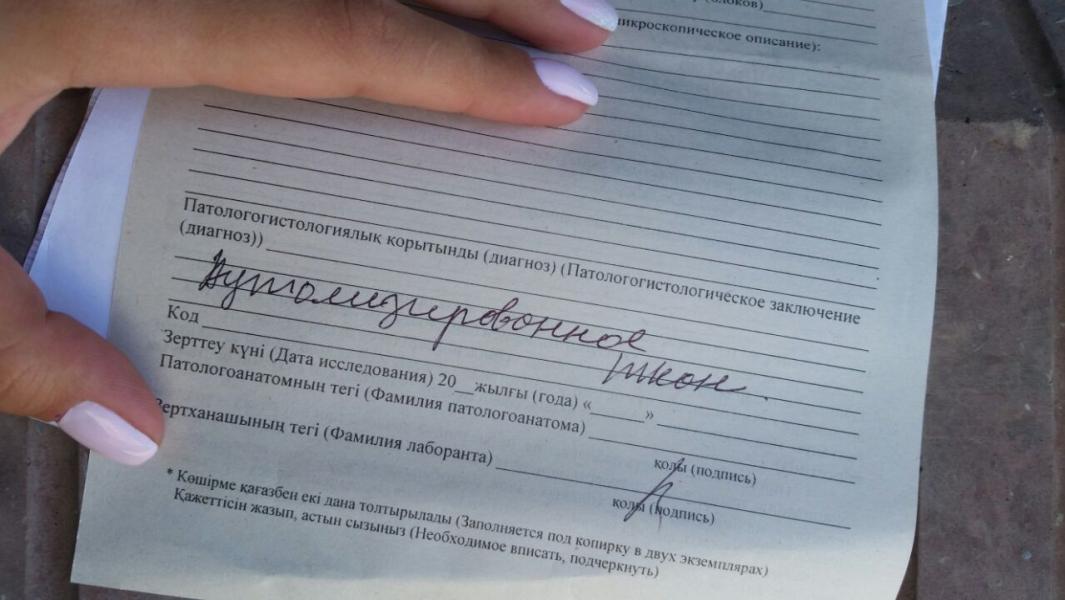 микроскопическое описание):
Патологогистологиялық қорытынды (диагноз) (Патологогистологическое заключение
(диагноз))
Аутолизированное
ткан
Код
Зерттеу күні (Дата исследования) 20__жылғы (года) «______»
Патологоанатомның тегі (Фамилия патологоанатома)
қолы (подпись)
Зертханашының тегі (Фамилия лаборанта)
қолы (подпись)
* Көшірме қағазбен екі дана толтырылады (Заполняется под копирку в двух экземплярах)
Қажеттісін жазып, астын сызыңыз (Необходимое вписать, подчеркнуть)